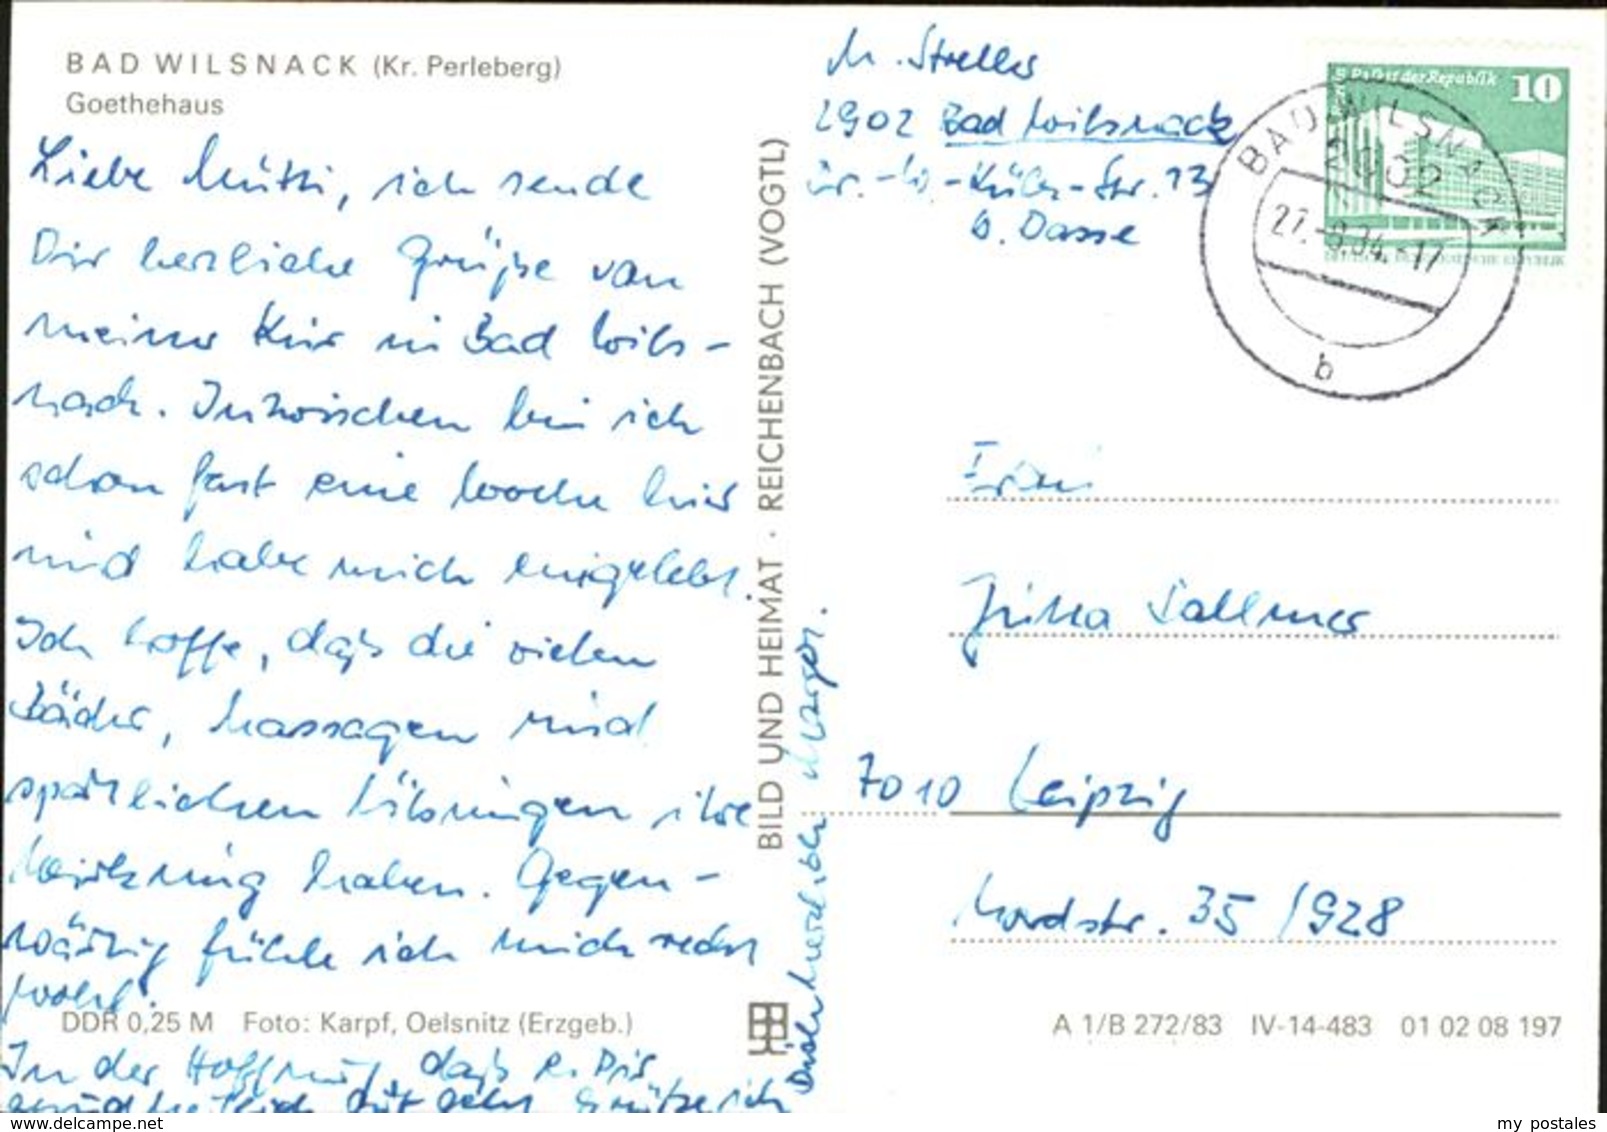 BAD WILSNACK (Kr. Perleberg)
Goethehaus
Liebe Mutti, ich sende
Dir herzliche Grüße von
meiner Kur in Bad Wils-
nack. Inzwischen bin ich
schon fast eine Woche hier
und habe mich eingelebt.
Ich hoffe, daß die vielen
Bäder, Massagen und
sportlichen Übungen ihre
Wirkung haben. Gegen-
wärtig fühle ich mich recht
wohl.
In der Hoffnung, daß e. Dir
gesundheitlich gut geht grüße ich
Dich herzlich Margot.
DDR 0,25 M Foto: Karpf, Oelsnitz (Erzgeb.)
BILD UND HEIMAT · REICHENBACH (VOGTL)
M. Streller
2902 Bad Wilsnack
Dr.-W.-Külz-Str. 13
b. Dasse
Palast der Republik 10
DEUTSCHE DEMOKRATISCHE REPUBLIK
BAD WILSNACK
2902
27.-8.84.-17
b
Frau
Jutta Vollmer
7010 Leipzig
Nordstr. 35 /928
A 1/B 272/83 IV-14-483 01 02 08 197
www.delcampe.net
my_postales